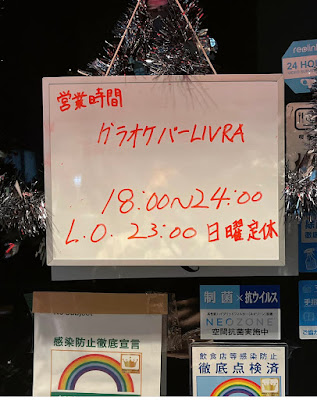 営業時間
グラオケバーLIVRA
18:00〜24:00
L.O. 23:00 日曜定休
reolink
24 HOU
制菌×抗ウイルス
NEOZONE
空間抗菌実施中
感染防止徹底宣言
飲食店等感染防止
徹底点検済